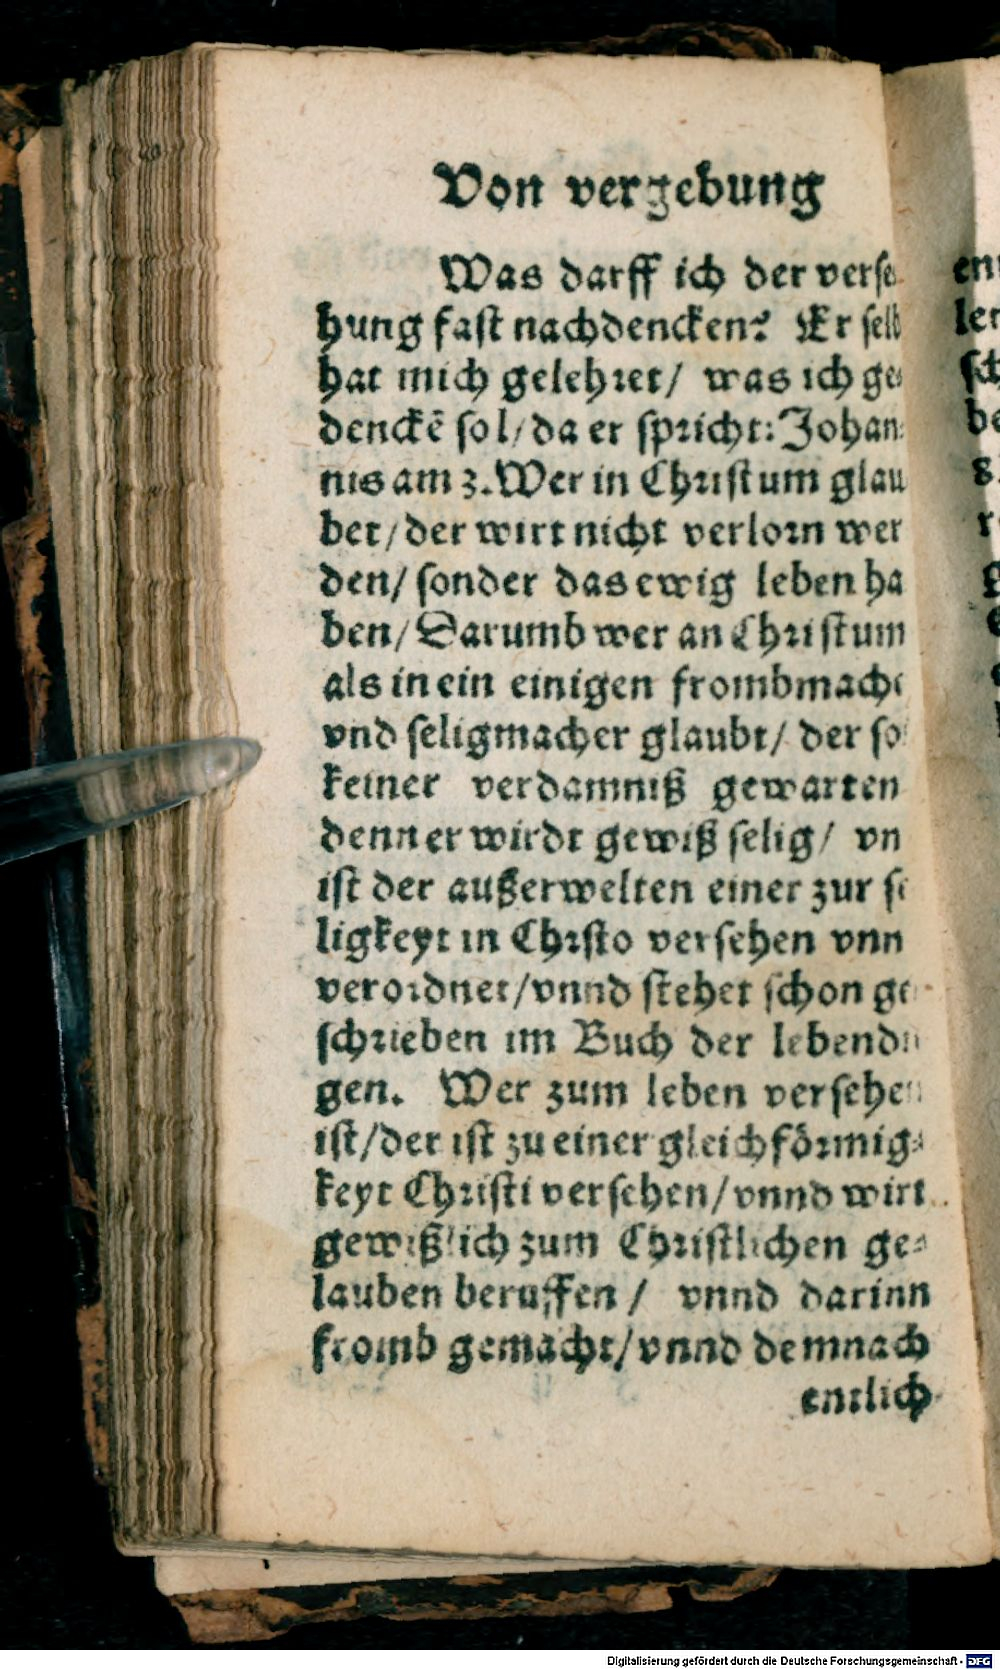 Von vergebung
Was darff ich der verse
hung fast nachdencken? Er selb
hat mich gelehret/ was ich ge⸗
denckē sol/ da er spricht: Johan⸗
nis am 3. Wer in Christum glau
bet/ der wirt nicht verlorn wer
den/ sonder das ewig leben ha
ben/ Darumb wer an Christum
als in ein einigen frombmache
vnd seligmacher glaubt/ der so
keiner verdamniß gewarten
denn er wirdt gewiß selig/ vn
ist der außerwelten einer zur se
ligkeyt in Christo versehen vnn
verordnet/ vnnd stehet schon ge
schrieben im Buch der lebendi
gen. Wer zum leben versehen
ist/ der ist zu einer gleichförmig⸗
keyt Christi versehen/ vnnd wirt
gewißlich zum Christlichen ge⸗
lauben beruffen/ vnnd darinn
fromb gemacht/ vnnd demnach
entlich
Digitalisierung gefördert durch die Deutsche Forschungsgemeinschaft - DFG